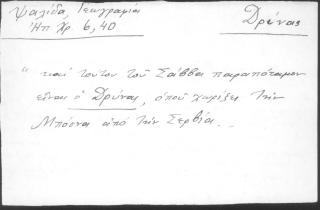 Ψαλίδα, Γεωγραφία
Ἠπ. Χρ. 6, 40
Δρύνας
"καί τούτου τοῦ Σάββα παραπόταμον
εἶναι ὁ Δρύνας, ὁποῦ χωρίζει τὴν
Μπόσνα ἀπό τὴν Σερβία..